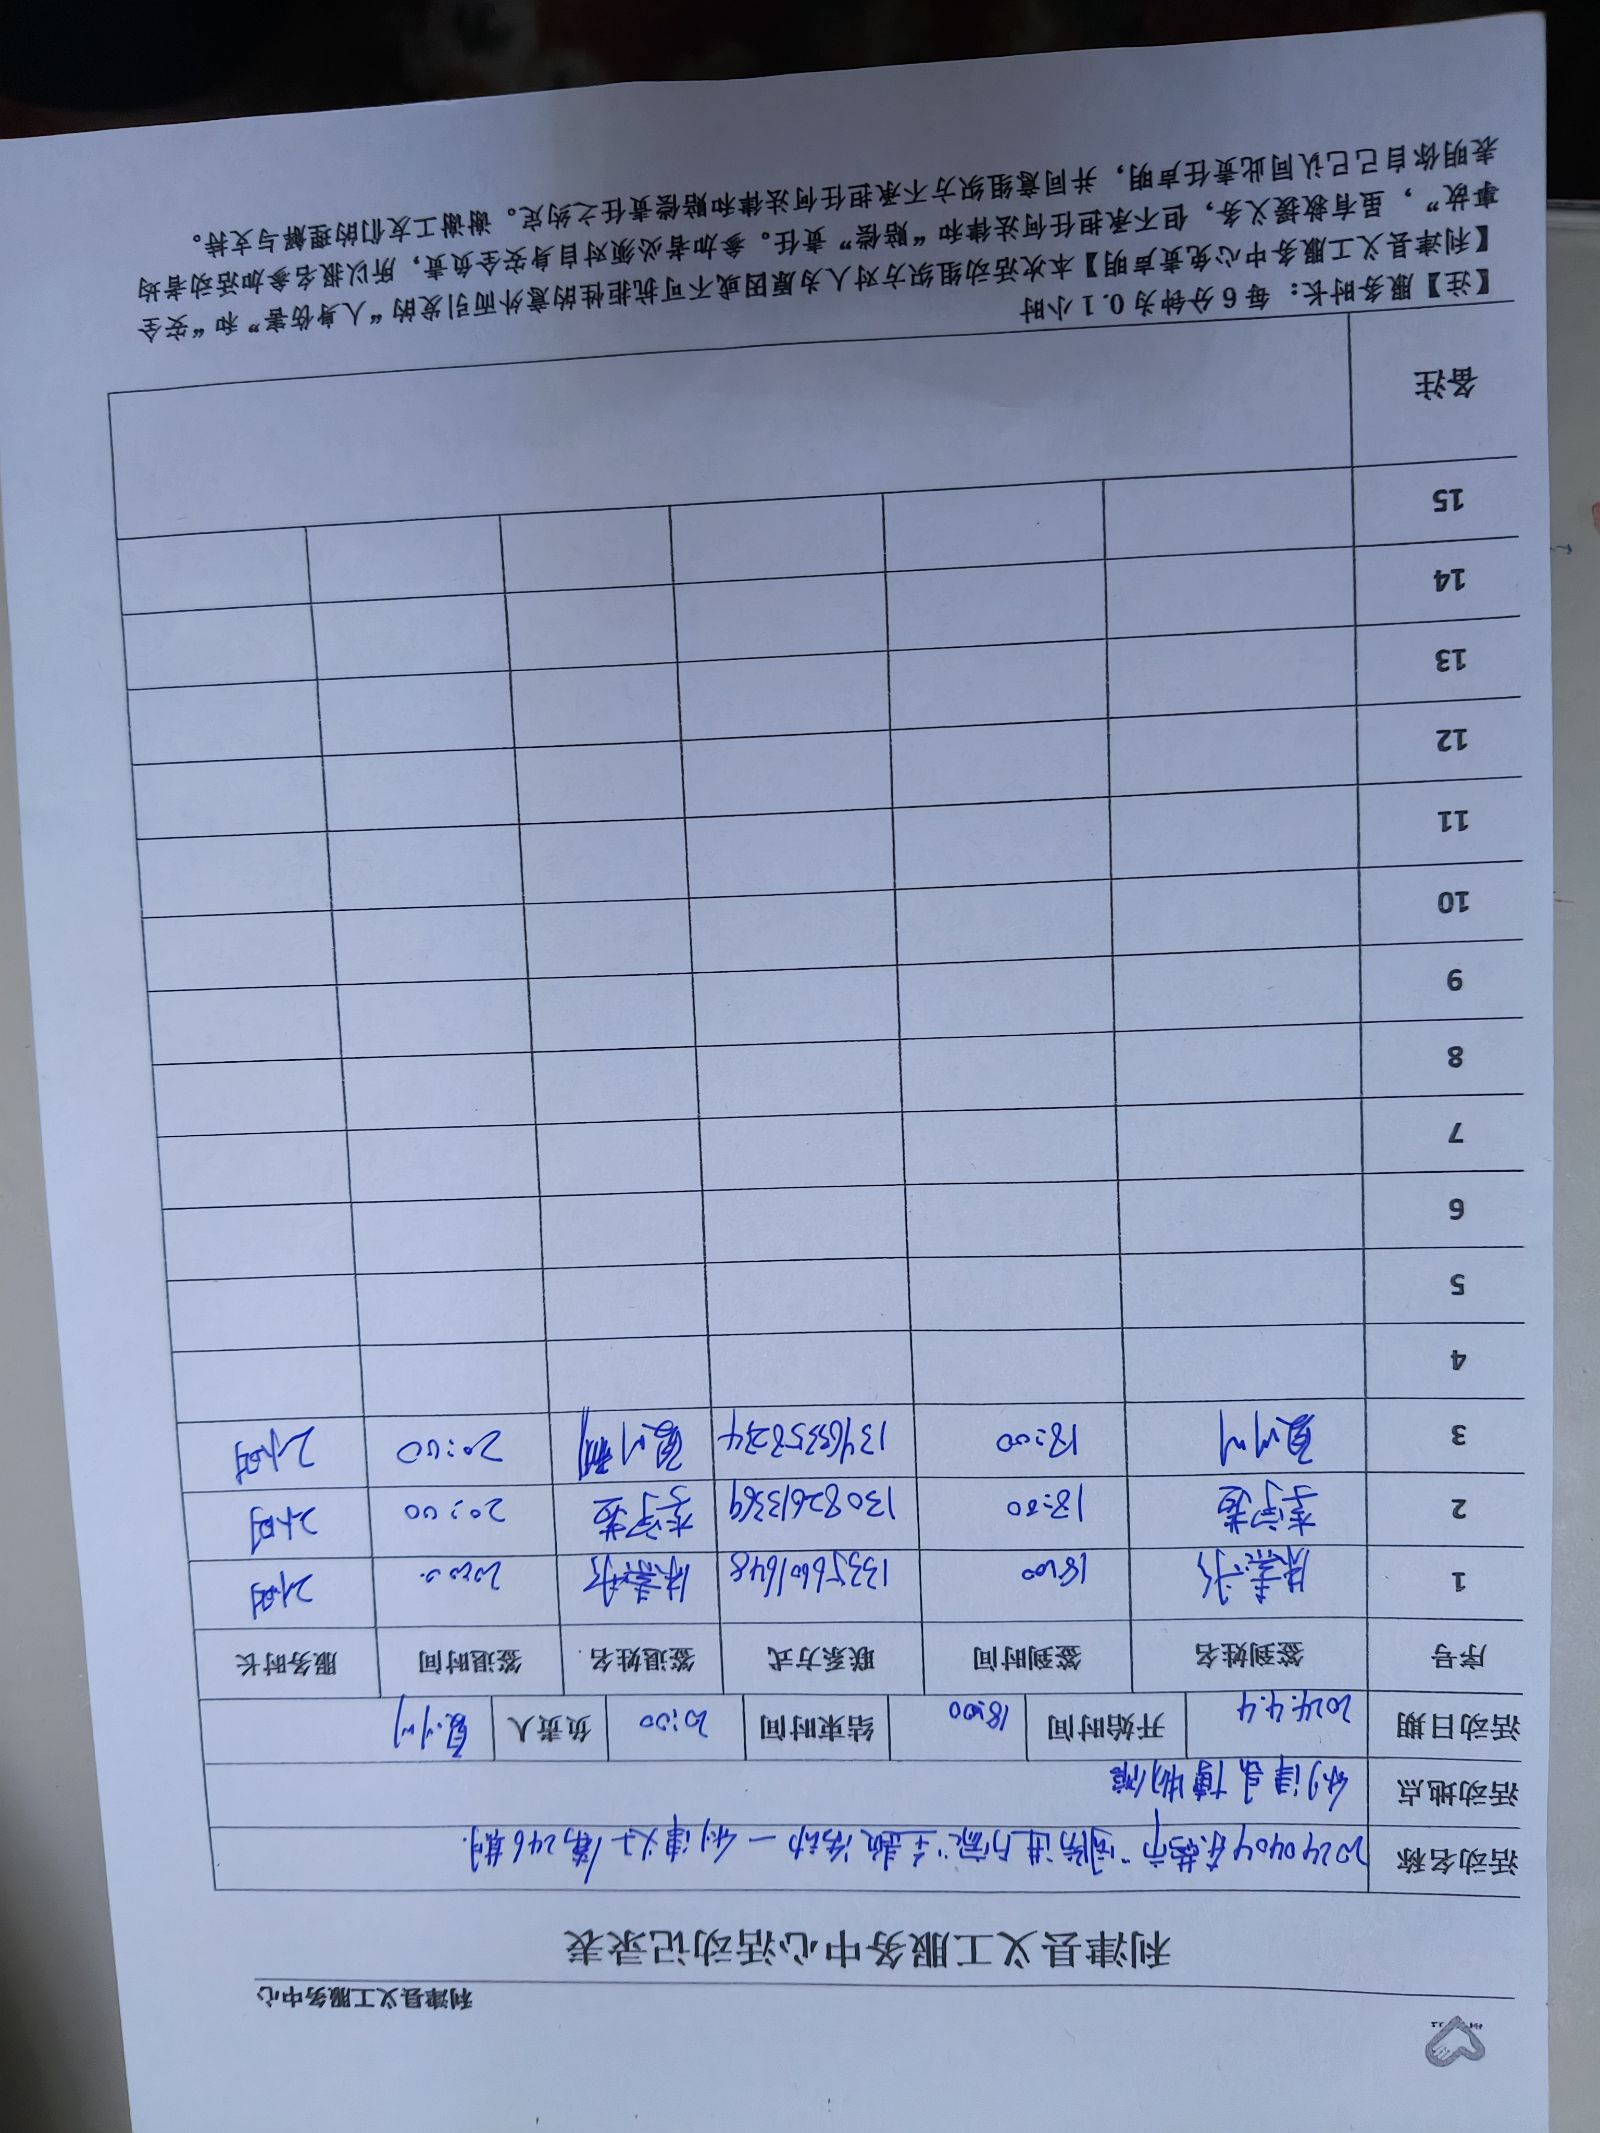 利津县义工服务中心
利津县义工服务中心活动记录表
活动名称 20240404 "消防进万家"主题活动—利津义工第246期.
活动地点 利津县博物馆
活动日期 2024.4.4 开始时间 18:00 结束时间 20:00 负责人
序号 签到姓名 签到时间 联系方式 签退姓名 签退时间 服务时长
1 18:00 13356601648 20:00 2小时
2 18:00 13082613369 20:00 2小时
3 18:00 20:00 2小时
4
5
6
7
8
9
10
11
12
13
14
15
备注
【注】服务时长：每6分钟为0.1小时
【利津县义工服务中心免责声明】本次活动组织方对人为原因或不可抗拒性的意外而引发的“人身伤害”和“安全
事故”，虽有救援义务，但不承担任何法律和“赔偿”责任。参加者必须对自身安全负责，所以报名参加活动者均
表明你自己已认同此责任声明，并同意组织方不承担任何法律和赔偿责任之约定。谢谢工友们的理解与支持。